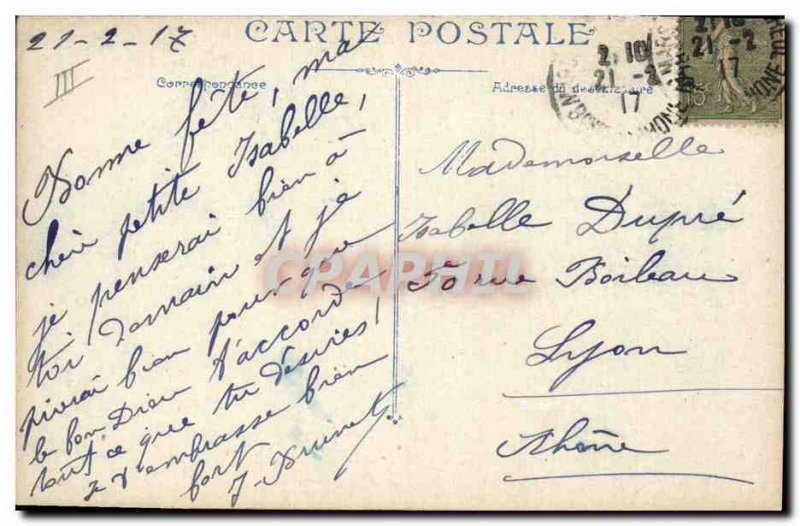 21-2-17
III
CARTE POSTALE
Correspondance
Adresse du destinataire
2. 10
21 -2
17
Bonne fête, ma
chère petite Isabelle,
je penserai bien à
toi demain et je
prierai bien pour que
le bon Dieu t'accorde
tout ce que tu désires!
Je t'embrasse bien
fort
Mademoiselle
Isabelle Dupré
rue Boileau
Lyon
Rhône
CPAPHIL